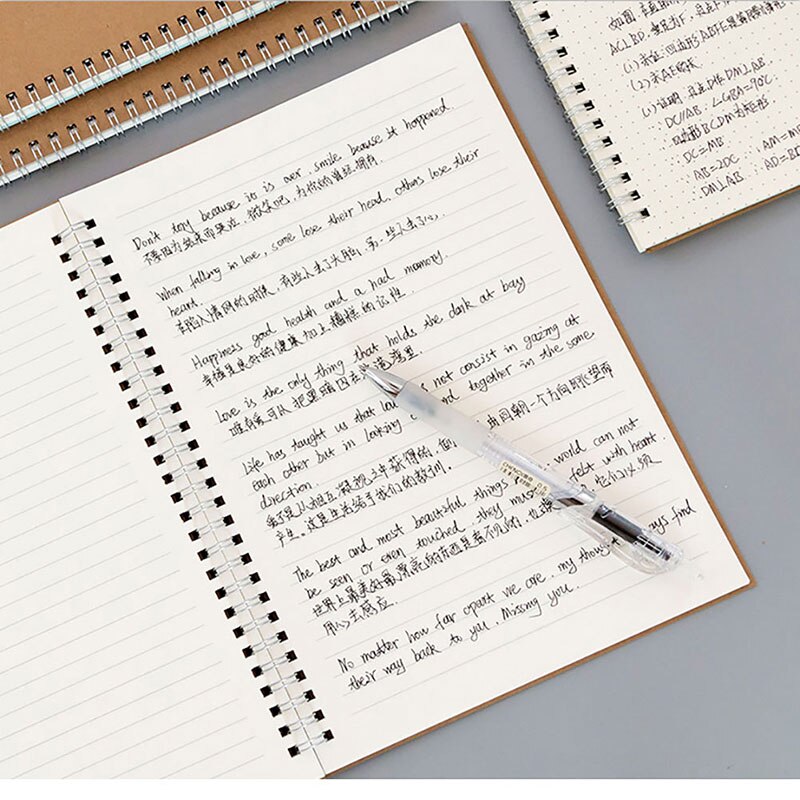 Don't tory because in is over, smile beause it happened.
不要因为结束而哭泣,微笑吧,为你的曾经拥有.
When falling in love, some lose their head, others lose their
heart.
在陷入情网的时候,有些人丢了大脑,另一些人丢了心.
Happiness good health and a had mamory.
幸福是良好的健康加上糟糕的记性
Love is the only thing that holds the dark at bay
唯有爱可以把黑暗困在 港湾里.
Life has taught us that lov not consist in gazing at
each other but in looking together in the same
direction.
爱不是从相互凝视之中获得的, 由同朝一个方向眺望而
产生。这是生活给予我们的教训.
The best and most beautiful things world can not
be seen or even touched, they must felt with heart.
世界上最美好最漂亮的东西是看不见的,也摸 它们必须
用心去感应.
No matter how far apart we are, my though ays find
their way back to you, Missing you.
如图,
ACLBD, 四边形ABFE是
(1)求证:四边形ABFE是
(2)求AE的长
(1)证明:
∵DC//AB, ∠CBA=90°C
四边形BCDM为矩形
∴DC=MB
AB=2DC ∴AM=M
∴DM⊥AB ∴AD=BD
0.5